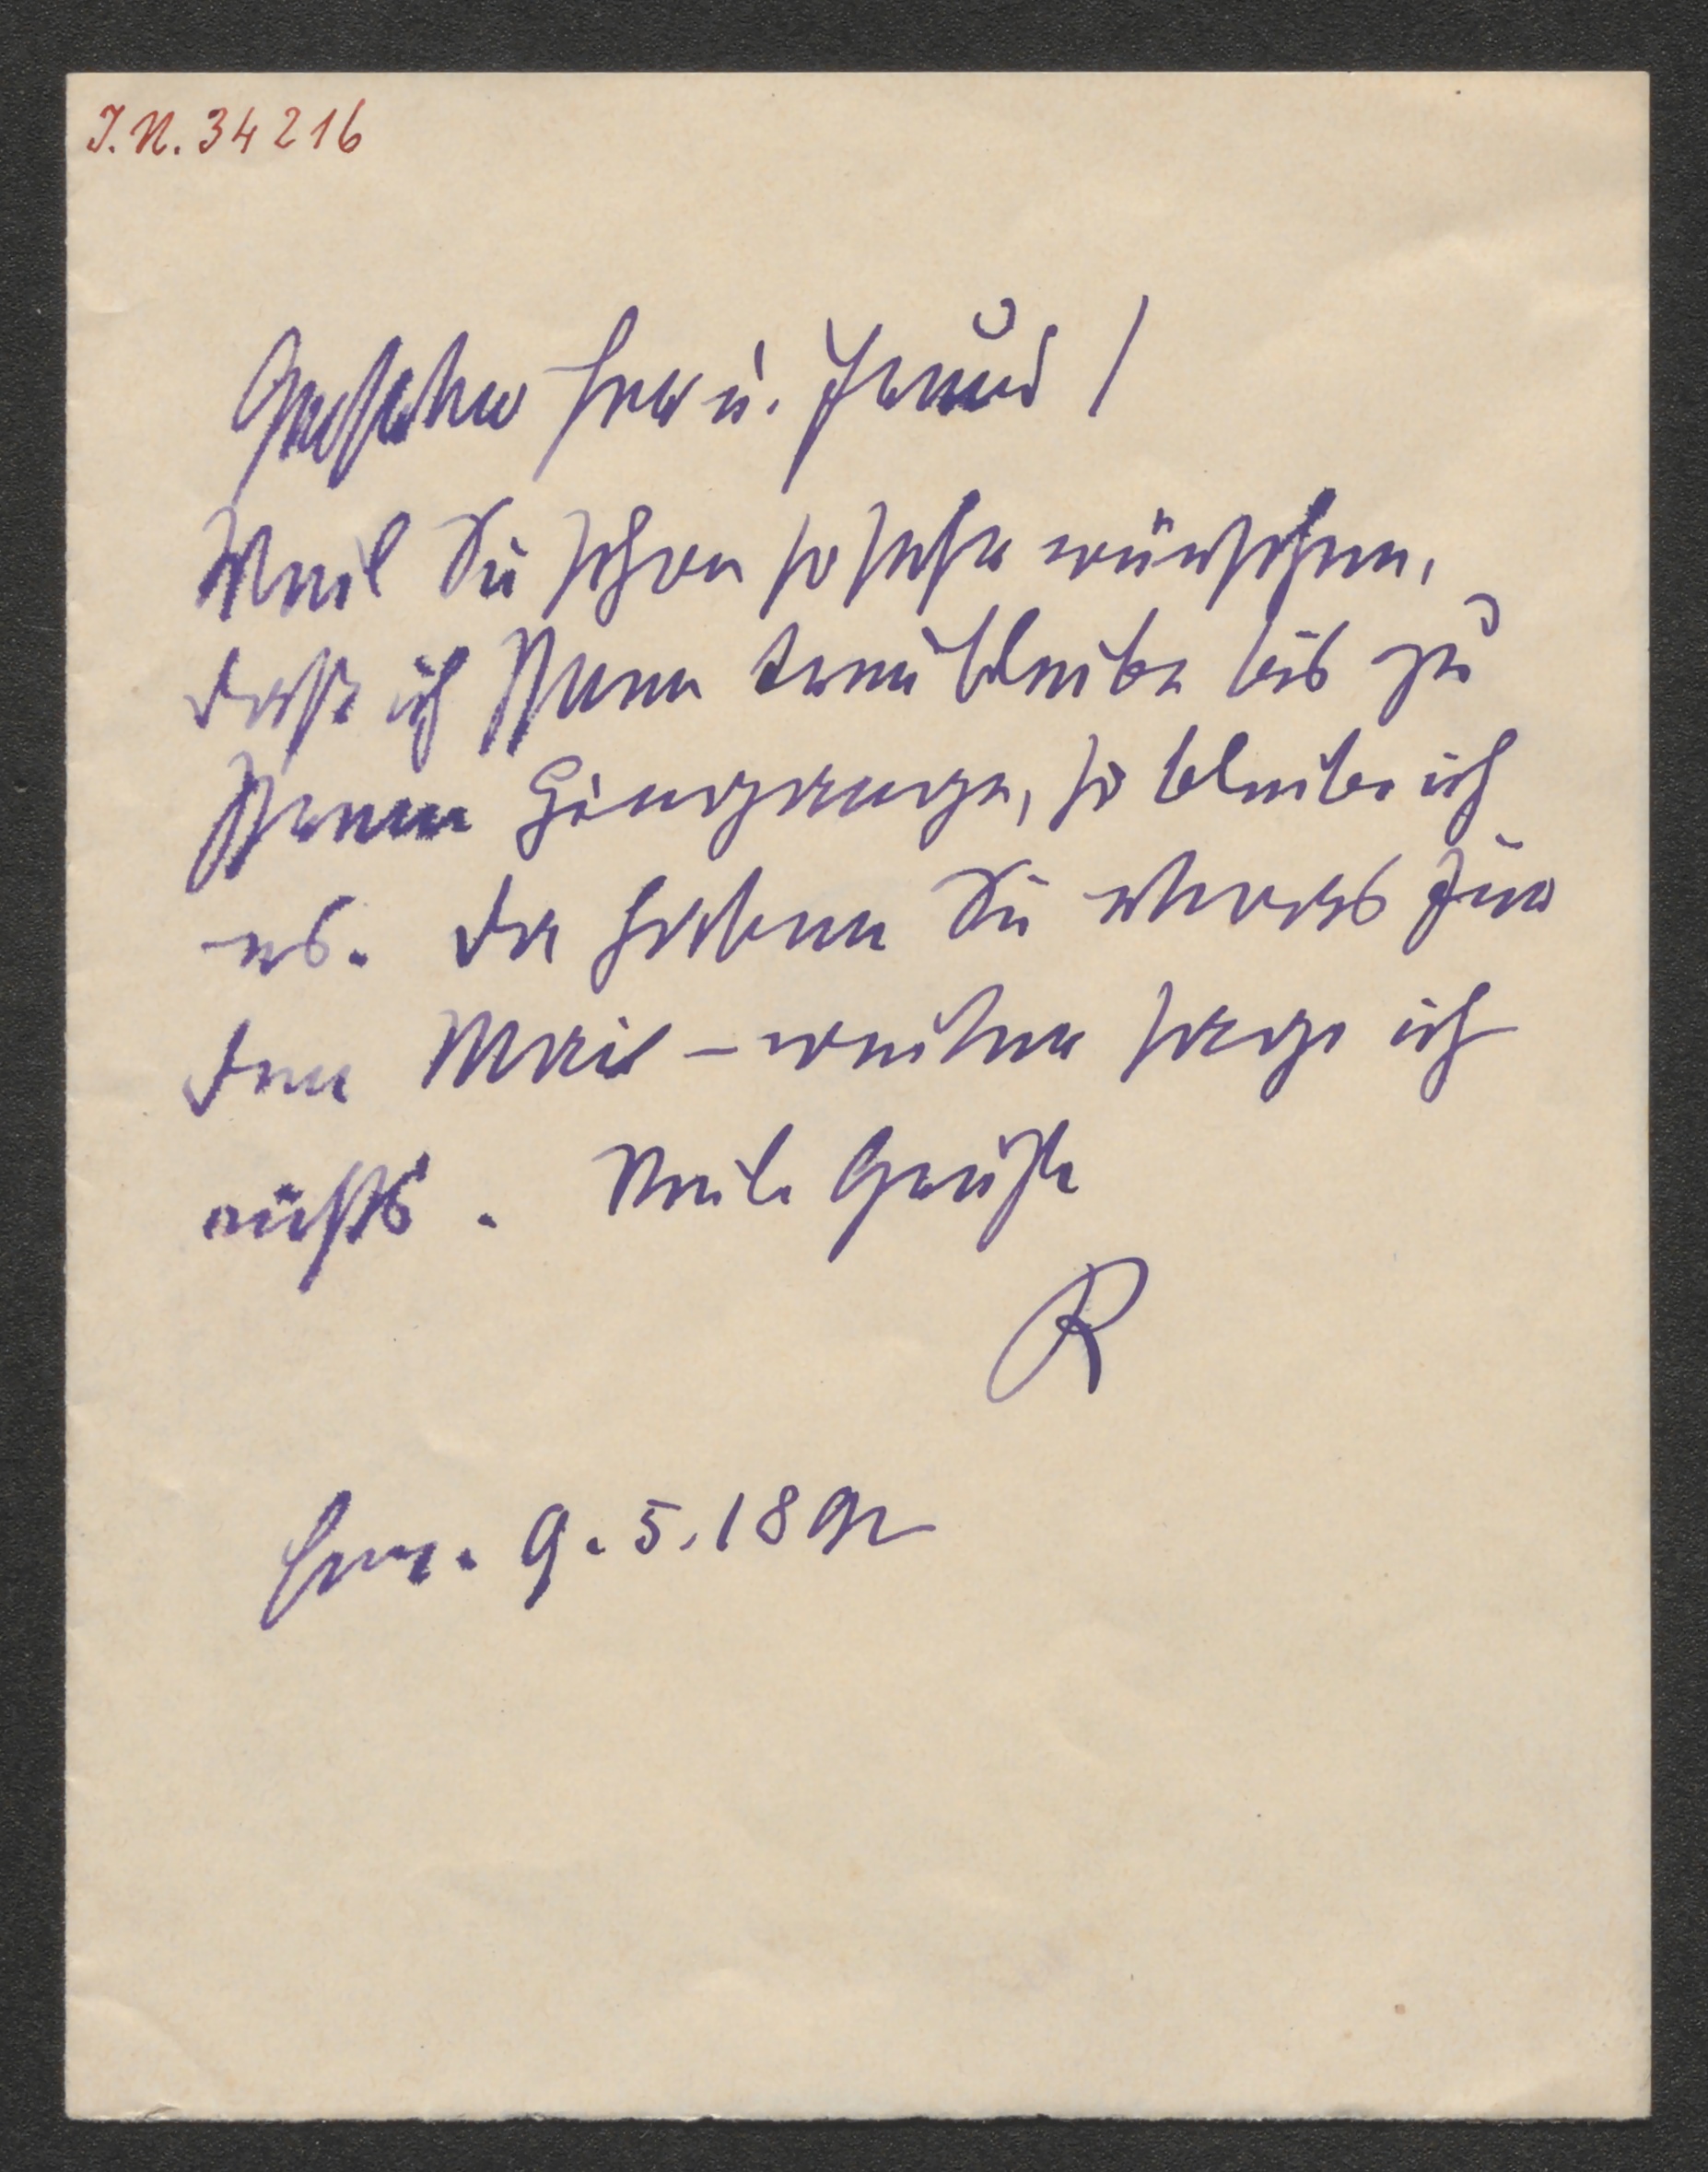 I.N. 34216
Geehrter Herr u. Freund!
Weil Sie schon so sehr wünschen,
dass ich Ihnen treu bleibe bis zu
Ihrem Hingange, so bleibe ich
es. Da haben Sie etwas für
den Mai – weiter sage ich
nichts. Viele Grüße
R
9.5.1892